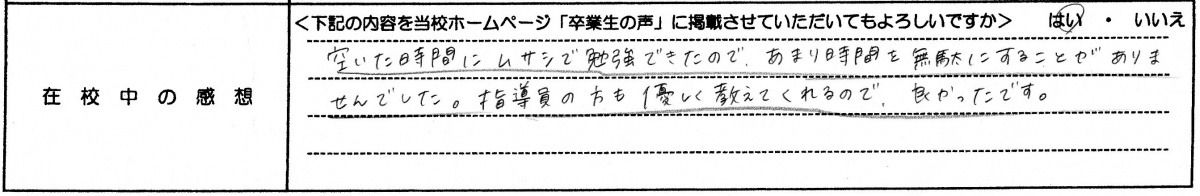 <下記の内容を当校ホームページ「卒業生の声」に掲載させていただいてもよろしいですか> はい ・ いいえ
在校中の感想
空いた時間にムサシで勉強できたので、あまり時間を無駄にすることがありま
せんでした。指導員の方も優しく教えてくれるので、良かったです。